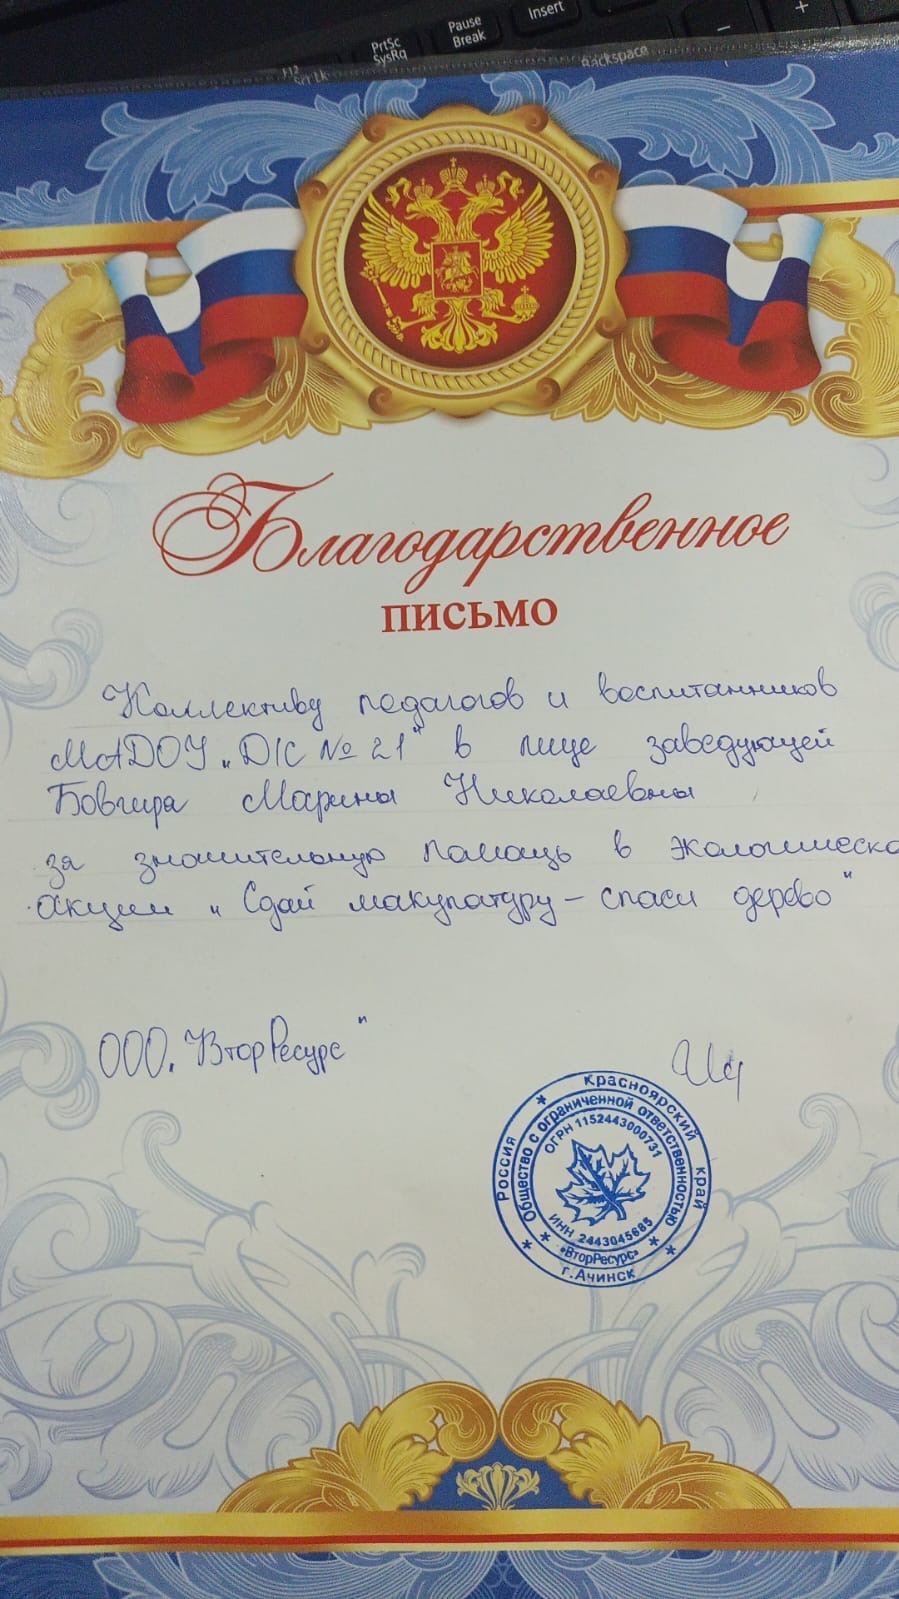 PrtSc
SysRq
Pause
Break
Insert
Backspace
Благодарственное
ПИСЬМО
Коллективу педагогов и воспитанников
МАДОУ „Д/С № 21" в лице заведующей
Бовгира Марины Николаевны
за значительную помощь в экологическо
акции „Сдай макулатуру – спаси дерево"
ООО „ВторРесурс"
Россия Красноярский край
г.Ачинск
Общество с ограниченной ответственностью
«ВторРесурс»
ОГРН 1152443000731
ИНН 2443045685